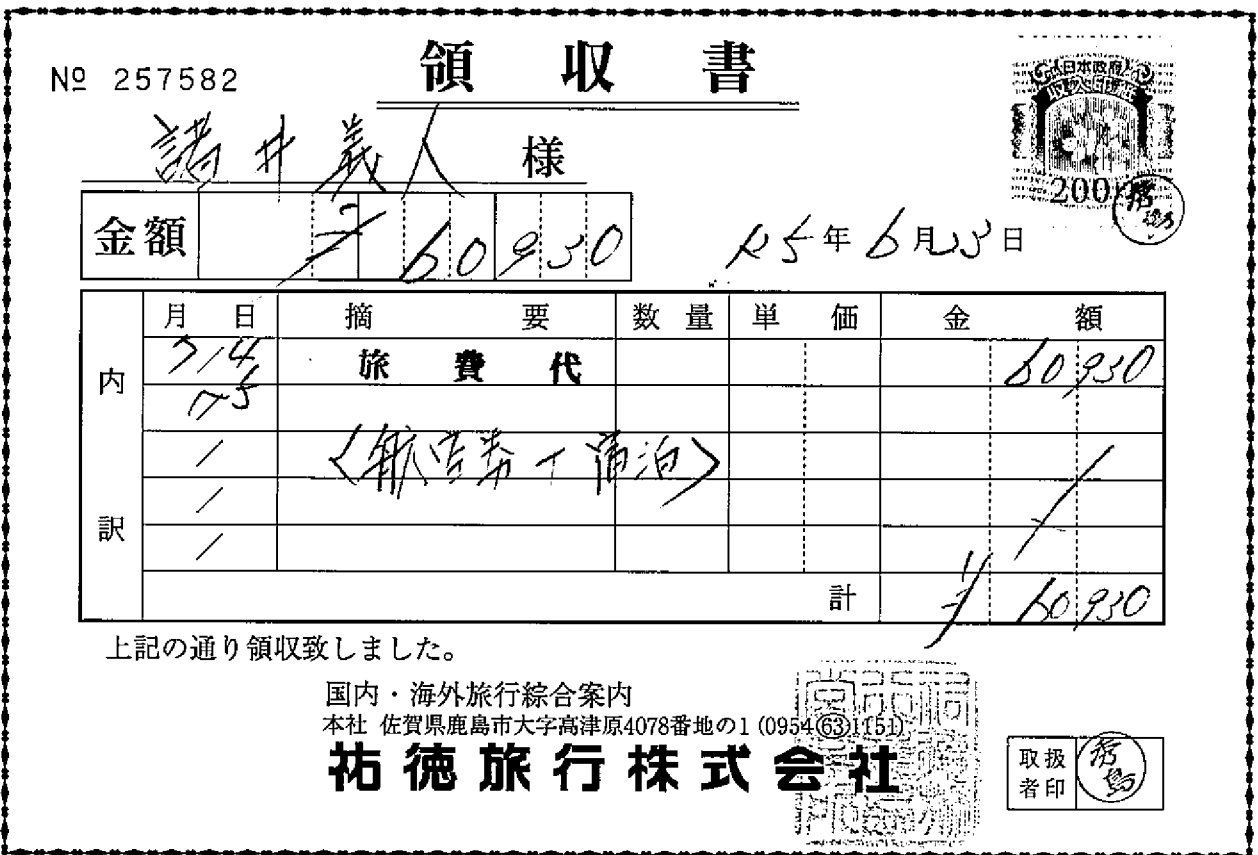 領収書
№ 257582
諸井義人 様
日本政府
収入印紙
200
金額 ¥60930
25年6月23日
月 日 摘 要 数量 単 価 金 額
内訳
7/4 旅費代 60930
7/5
/ 〈航空券+宿泊〉
/
/
計 ¥60930
上記の通り領収致しました。
国内・海外旅行綜合案内
本社 佐賀県鹿島市大字高津原4078番地の1 (0954(63)1151)
祐徳旅行株式会社
取扱者印